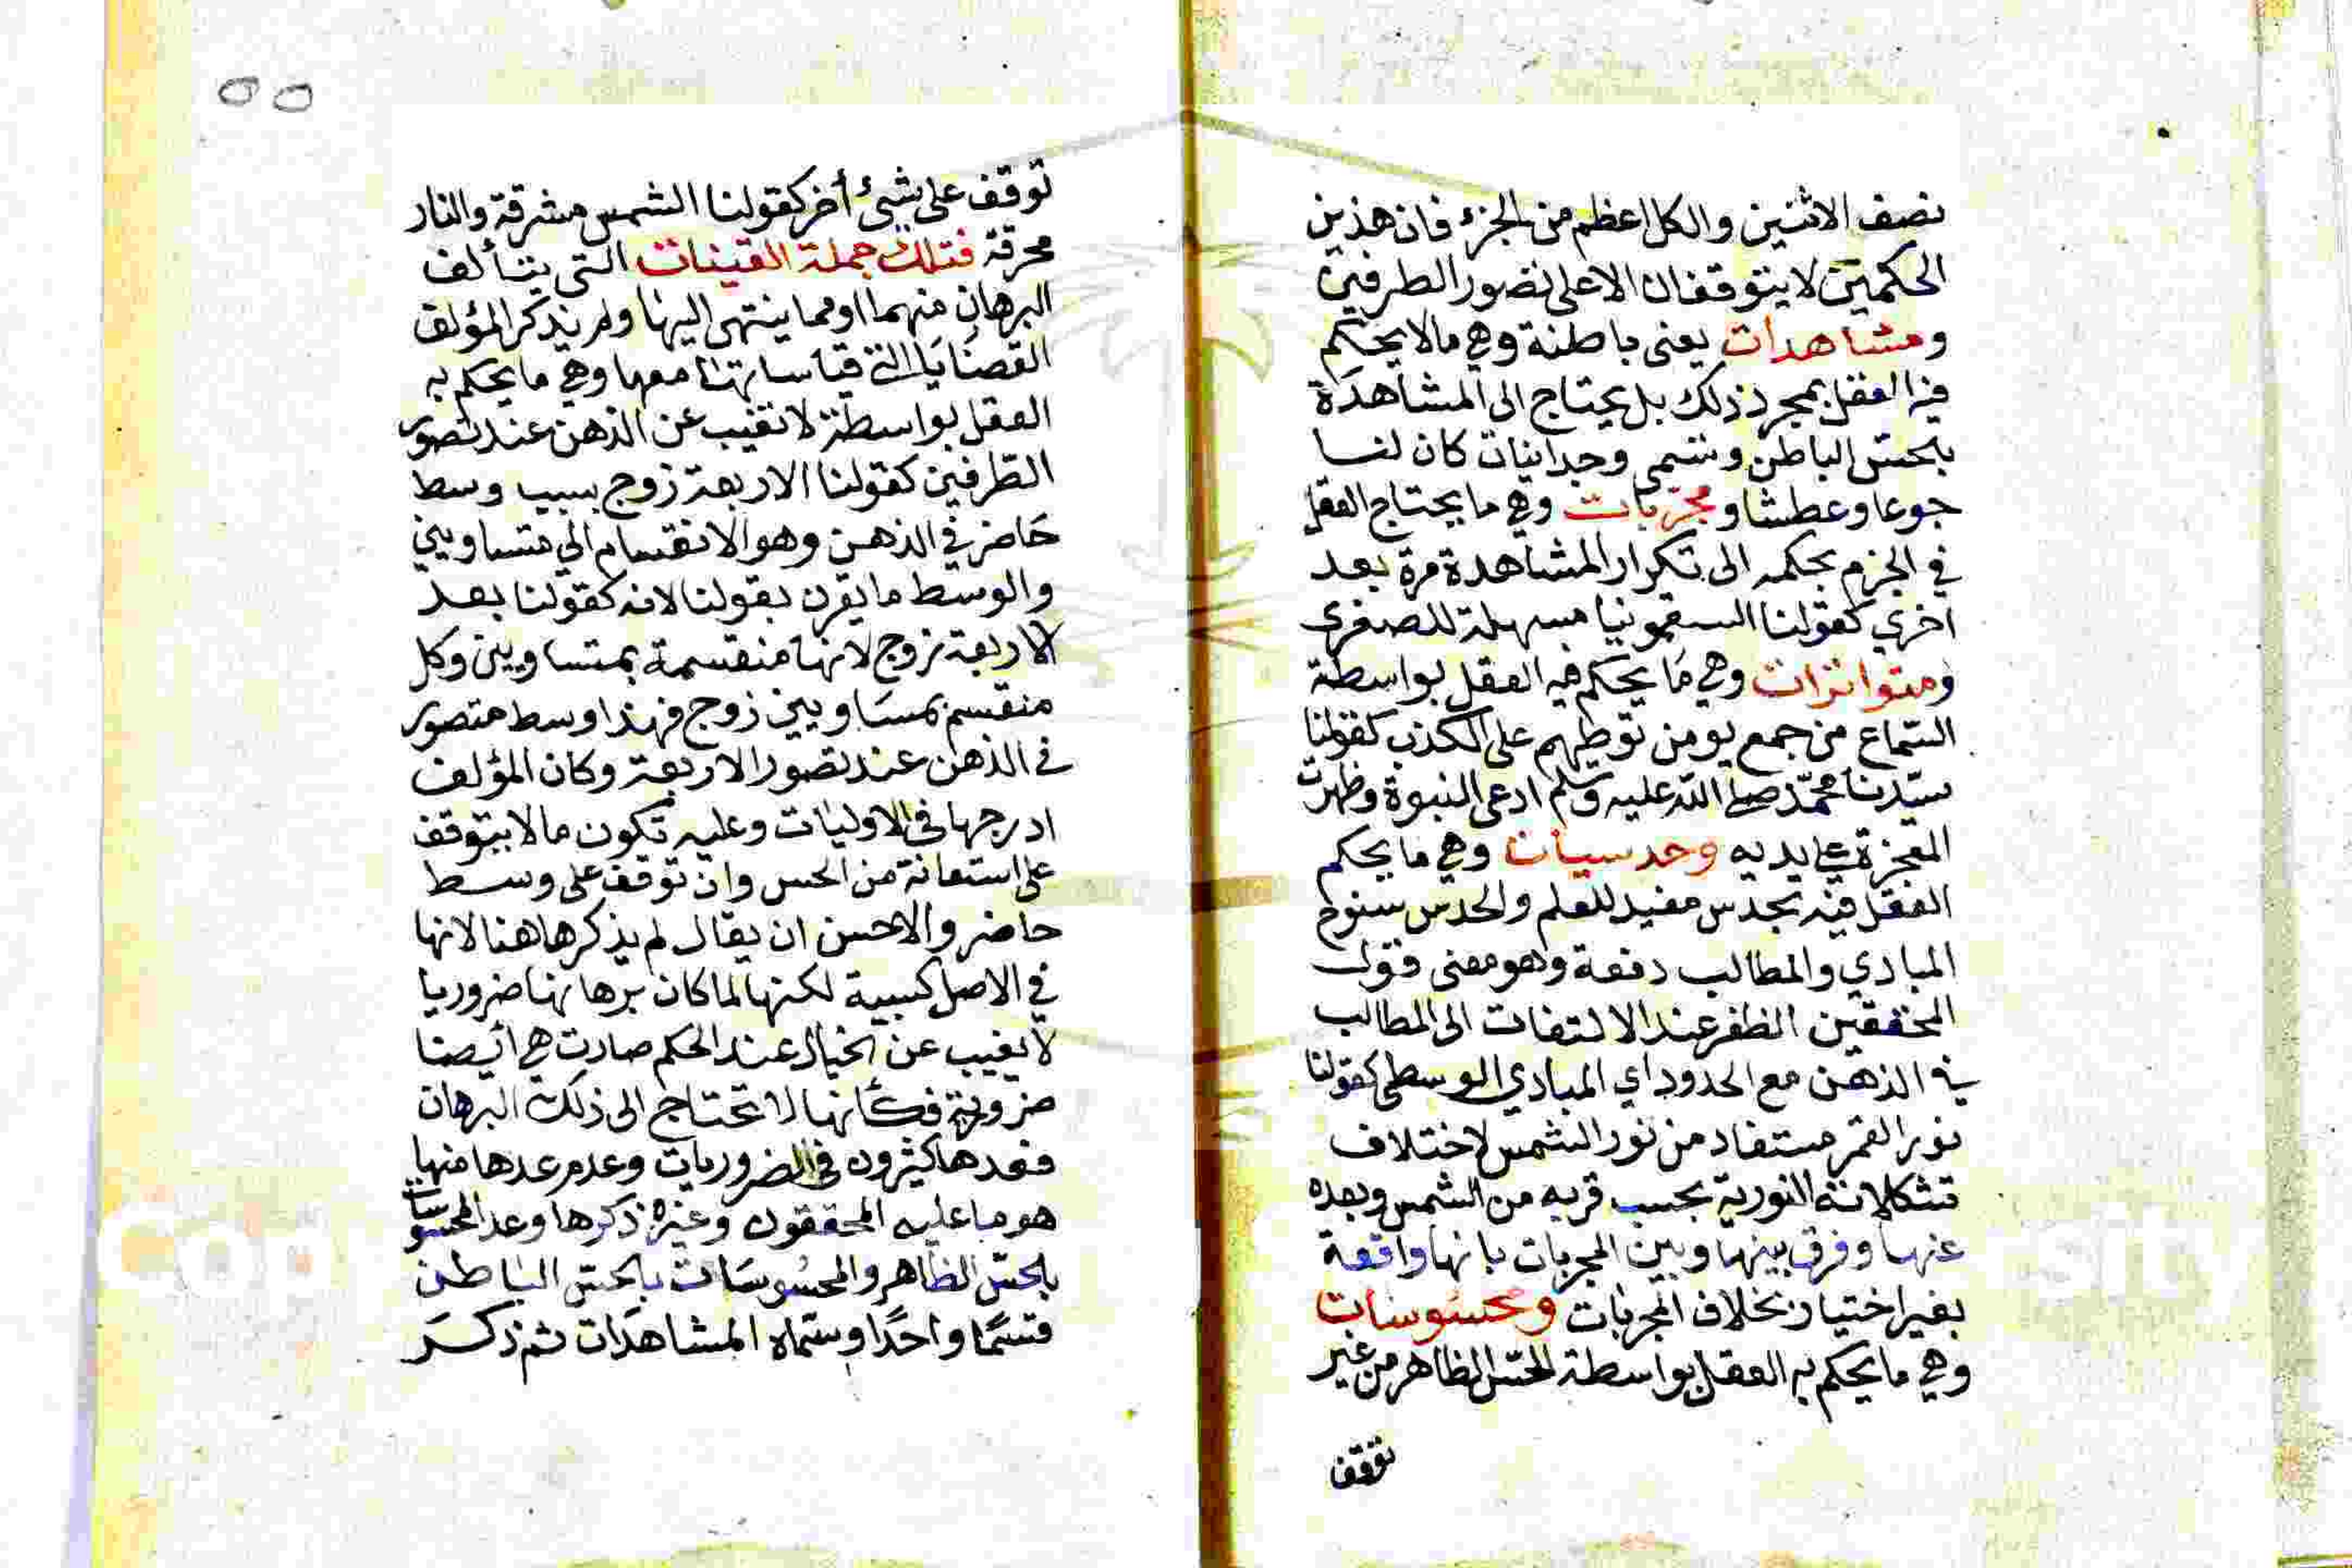 نصف الاثنين والكل اعظم من الجزء فان هذين
الحكمين لا يتوقفان الا على تصور الطرفين
ومشاهدات يعنى باطنة وهي مالا يحكم
فيه العقل بمجرد ذلك بل يحتاج الى المشاهدة
بالحس الباطن وتسمى وجدانيات كان لنا
جوعا وعطشا ومجربات وهي ما يحتاج العقل
في الجزم بحكمه الى تكرار المشاهدة مرة بعد
اخري كقولنا السقمونيا مسهلة للصفرى
ومتواترات وهي ما يحكم فيه العقل بواسطة
السماع من جمع يومن توطيهم على الكذب كقولنا
سيدنا محمد صلى الله عليه وسلم ادعى النبوة وظهرت
المعجزة على يديه وحدسيات وهي ما يحكم
العقل فيه بحدس مفيد للعلم والحدس سنوح
المبادي والمطالب دفعة وهو معنى قول
المحققين الظفر عند الالتفات الى المطالب
في الذهن مع الحدود اي المبادي الوسطى كقولنا
نور القمر مستفاد من نور الشمس لاختلاف
تشكلاته النورية بحسب قربه من الشمس وبعده
عنها وفرق بينها وبين المجربات بانها واقعة
بغير اختيار بخلاف المجربات ومحسوسات
وهي ما يحكم به العقل بواسطة الحس الظاهر من غير
توقف
٥٥
توقف على شيء أخر كقولنا الشمس مشرقة والنار
محرقة فتلك جملة اليقينات التى يتألف
البرهان منهما او مما ينتهى اليها ولم يذكر المؤلف
القضايا التي قياساتها معها وهي ما يحكم به
العقل بواسطة لا تغيب عن الذهن عند تصور
الطرفين كقولنا الاربعة زوج بسبب وسط
حاضر في الذهن وهو الانقسام الي متساويين
والوسط ما يقرن بقولنا لانه كقولنا بعد
الاربعة زوج لانها منقسمة بمتساويين وكل
منقسم بمساويين زوج فهذا وسط متصور
في الذهن عند تصور الاربعة وكان المؤلف
ادرجها في الاوليات وعليه تكون ما لا يتوقف
على استعانة من الحس وان توقف على وسط
حاضر والاحسن ان يقال لم يذكرها هنا لانها
في الاصل كسبية لكنها لما كان برهانها ضروريا
لا يغيب عن الخيال عند الحكم صارت هي أيضا
ضرورية فكأنها لا تحتاج الى ذلك البرهان
فعدها كثيرون في الضروريات وعدم عدها منها
هو ما عليه المحققون وغيره ذكرها وعد المحسوسات
بالحس الظاهر والمحسوسات بالحس الباطن
قسما واحدا وسماه المشاهدات ثم ذكر